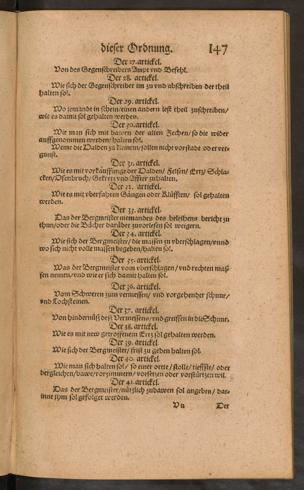 dieser Ordnung. 147
Der 27. artickel.
Von des Gegenschreibers Ampt vnd Befehl.
Der 28. artickel.
Wie sich der Gegenschreiber im zu vnd abschreiben der theil
halten sol.
Der 29. artickel.
Wo jemandt in schein eines andern lest theil zuschreiben/
wie es damit sol gehalten werden.
Der 30. artickel.
Wie man sich mit bawen der alten Zechen/ so die wider
auffgenommen werden/ halten sol.
Wenn die Halden zu kleinen/ sollen nicht vorstadt oder ver-
gunst.
Der 31. artickel.
Wie es mit vorkauffung der Halden/ Felsen/ Ertz/ Schla-
cken/ Ofenbruch/ Gekretz vnd Affter zuhalten.
Der 32. artickel.
Wie es mit vberfahren Gängen oder Klüfften/ sol gehalten
werden.
Der 33. artickel.
Das der Bergmeister niemandes des beleihens bericht zu
thun/ oder die Bücher darüber zuvorlesen sol weigern.
Der 34. artickel.
Wie sich der Bergmeister/ die massen zu vberschlagen/ vnnd
wo sich nicht volle massen begeben/ halten sol.
Der 35. artickel.
Was der Bergmeister vom vberschlagen/ vnd rechten maß
sen nemen/ vnd wie er sich damit halten sol.
Der 36. artickel.
Vom Schweren zum vermessen/ vnd vorgehender schnure/
vnd Lochsteinen.
Der 37. artickel.
Von hindernüß deß Vermessens/ vnd greiffen in die Schnur.
Der 38. artickel.
Wie es mit new getroffenem Ertz sol gehalten werden.
Der 39. artickel.
Wie sich der Bergmeister/ frist zu geben halten sol.
Der 40. artickel.
Wie man sich halten sol/ so einer orte/ stolle/ tieffste/ oder
dergleichen/ bawe/ vorzimmern/ vorsetzen oder vorstürtzen wil.
Der 41. artickel.
Das der Bergmeister/ nützlich zubawen sol angeben/ dar-
inne jhm sol gefolget werden.
Vu Der